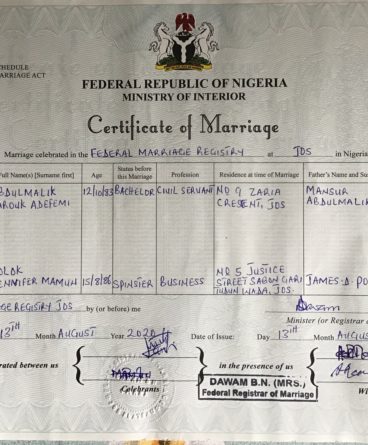 SCHEDULE
MARRIAGE ACT
FEDERAL REPUBLIC OF NIGERIA
MINISTRY OF INTERIOR
Certificate of Marriage
Marriage celebrated in the FEDERAL MARRIAGE REGISTRY at JOS in Nigeria
Full Name(s) [Surname first] Age Status before this Marriage Profession Residence at time of Marriage Father's Name and Su
ABDULMALIK 12/10/83 BACHELOR CIVIL SERVANT NO 9 ZARIA MANSUR
FAROUK ADEFEMI CRESENT, JOS ABDULMALIK
POLOK NO 5 JUSTICE
JENNIFER MAMUN 15/8/86 SPINSTER BUSINESS STREET SABON GARI JAMES D. PO
TUDUN WADA, JOS.
GE REGISTRY JOS by (or before) me
Minister (or Registrar
13th Month AUGUST Year 2020 Date of Issue: Day 13th Month AUGUS
rated between us in the presence of us
Celebrants
DAWAM B.N. (MRS.)
Federal Registrar of Marriage
Wi